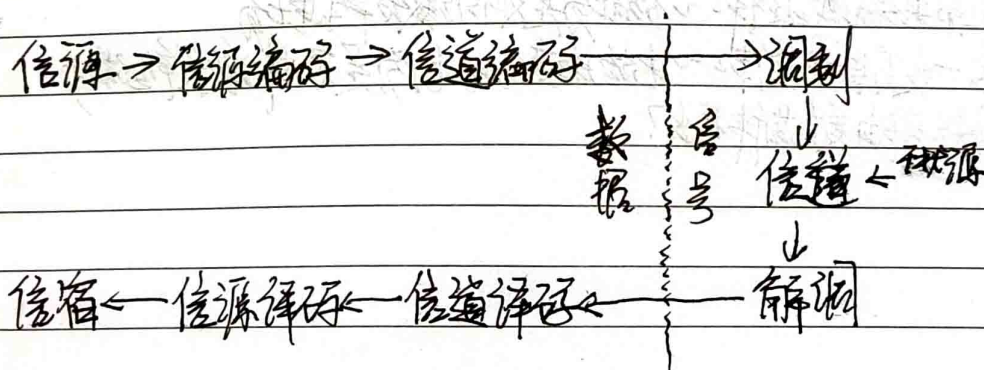 信源→信源编码→信道编码→调制
↓
数据 信号
信道←干扰源
↓
信宿←信源译码←信道译码←解调